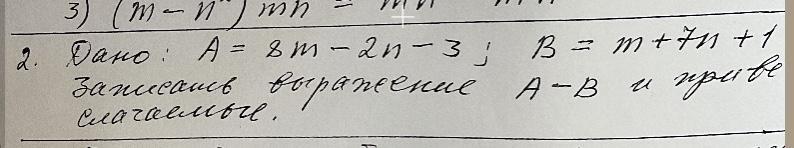 3) (m - n
2. Дано: A = 8m - 2n - 3; B = m + 7n + 1
Записать выражение A - B и приве
слагаемые.